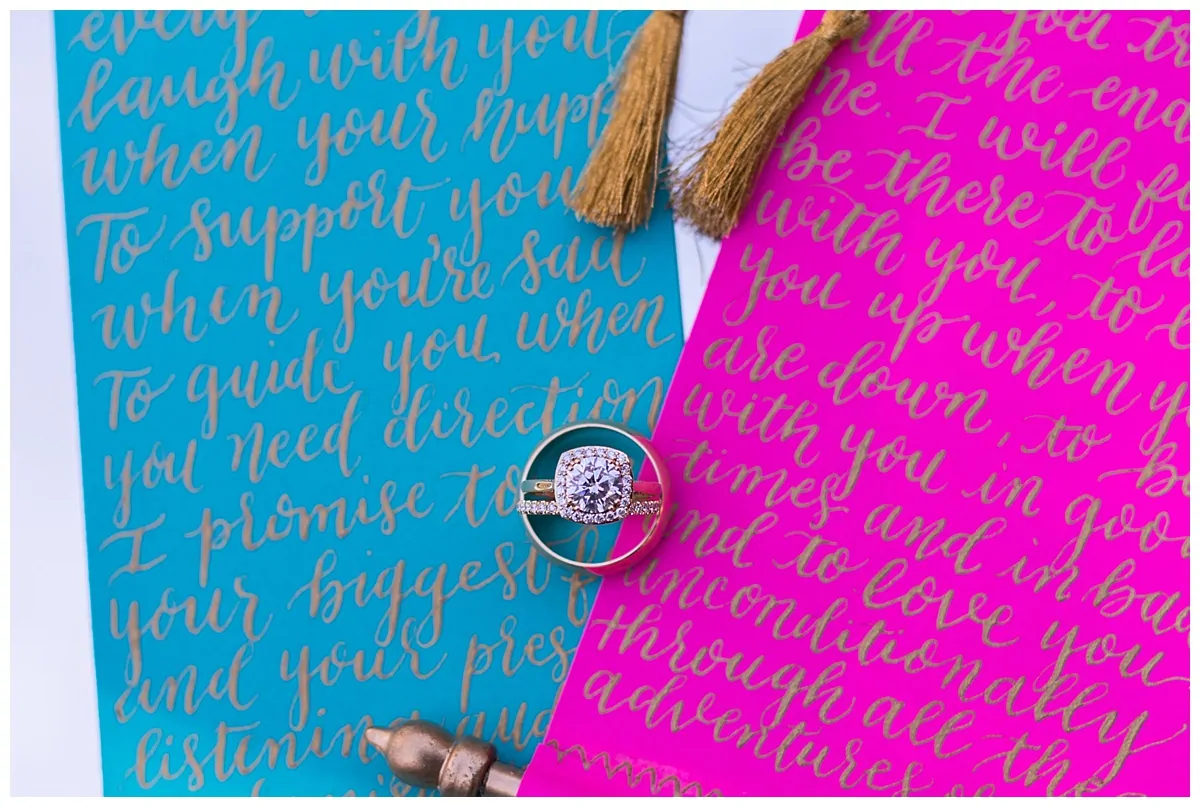 every
laugh with you
when your happ
To support you
when you're sad
To guide you when
you need direction
I promise to
your biggest f
and your pres
listening aud
you tr
all the end
me. I will
be there to la
with you, to
you up when y
are down, to be
with you in goo
times and in bad
and to love you
unconditionally
through all the
adventures of